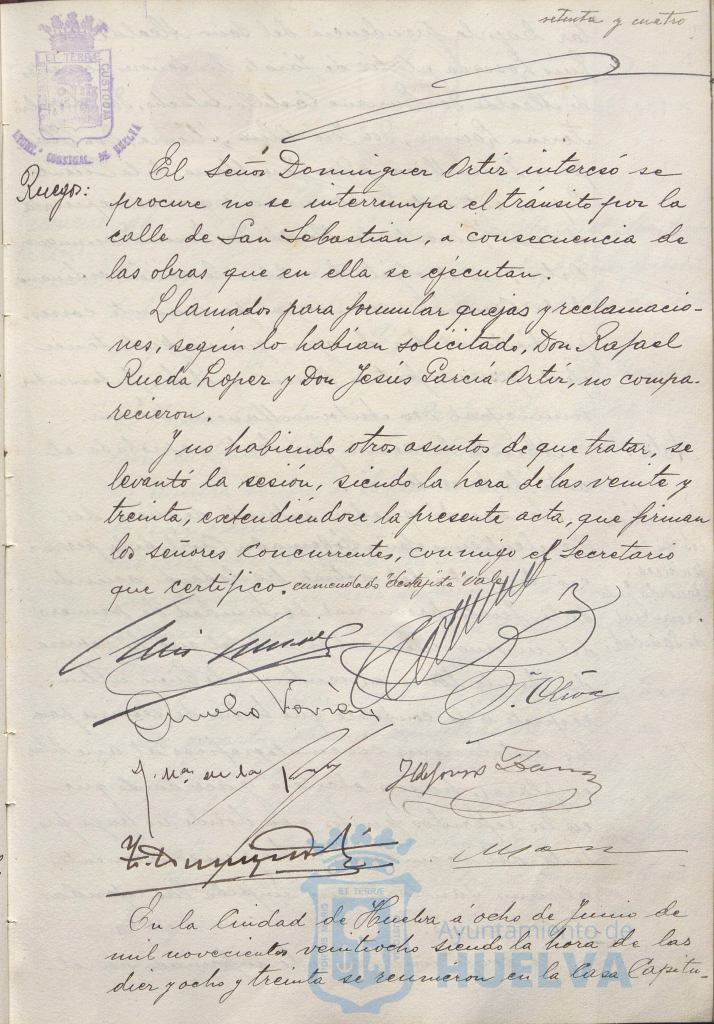 setenta y cuatro
ET TERRÆ
CUSTODIA
AYUNT. CONSTNAL. DE HUELVA
Ruegos:
El Señor Dominguez Ortiz interesó se
procure no se interrumpa el tránsito por la
calle de San Sebastian, á consecuencia de
las obras que en ella se ejecutan.
Llamados para formular quejas y reclamacio-
nes, según lo habían solicitado, Don Rafael
Rueda Lopez y Don Jesús García Ortíz, no compa-
recieron.
Y no habiendo otros asuntos de que tratar, se
levantó la sesión, siendo la hora de las veinte y
treinta, extendiéndose la presente acta, que firman
los señores concurrentes, conmigo el Secretario
que certifico. enmendado "destajista" vale
J. Oliva
J. Mª de la
Ildefonso
En la Ciudad de Huelva á ocho de Junio de
mil novecientos veintiocho siendo la hora de las
diez y ocho y treinta se reunieron en la Casa Capitu-
ET TERRÆ
Ayuntamiento de
HUELVA